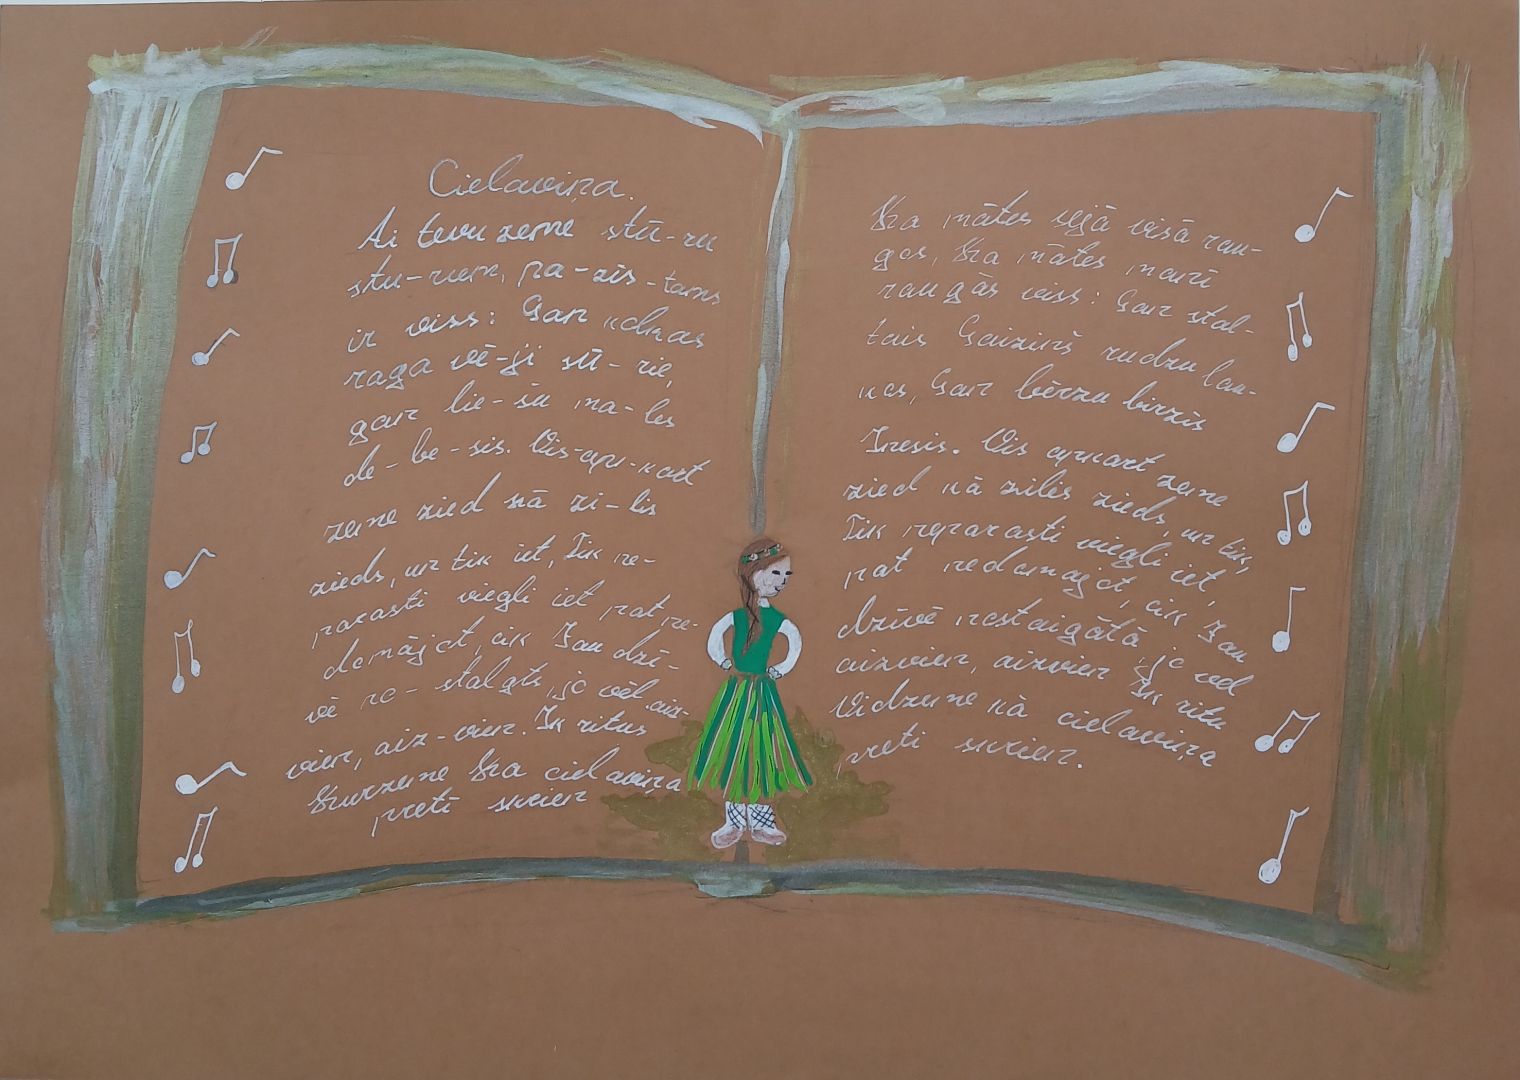 Cielaviņa.
Ai tevu zeme stū-ru
stu-rum, pa-zīs-tams
ir viss: Gan kolkas
raga vē-ji sū-rie,
gan lie-sū ma-las
de-be-sis. Vis-apu-kārt
zeme zied kā zi-lis
zieds, un tik iet, Tik ne-
parasti viegli iet pat ne-
domājot, cik Jau dzī-
vē no-staigāts, jo vēl aiz-
vien, aiz-vien. Ik ritus
Kurzeme Ka cielaviņa
pretī skrien
Ka mātes sejā visā rau-
gos, Ka mātes manī
raugās viss: Gan stal-
tais Gaiziņš rudzu lau-
kos, Gan bērzu birzīs
Inesis. Vis apkārt zeme
zied kā zilis zieds, un tik,
Tik neparasti viegli iet,
pat nedomājot, cik Jau
dzīvē nostaigātā, jo vēl
aizvien, aizvien Ik ritu
Vidzeme kā cielaviņa
preti skrien.